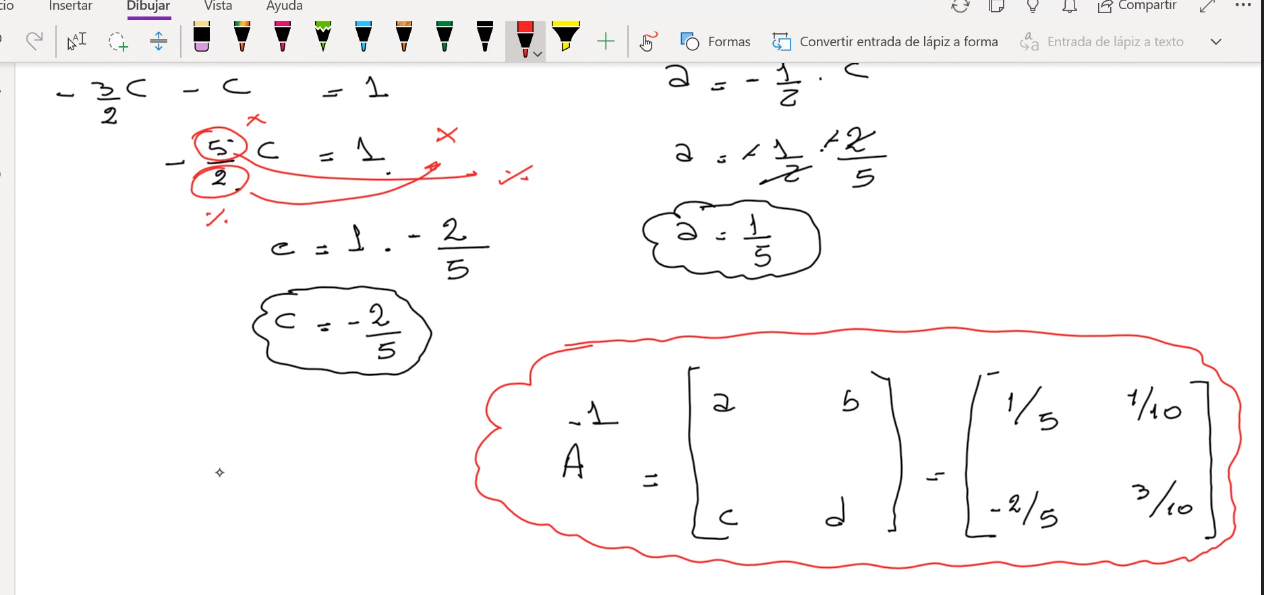 cio Insertar Dibujar Vista Ayuda Compartir
Formas Convertir entrada de lápiz a forma Entrada de lápiz a texto
- 3/2 C - C = 1
a = - 1/2 . C
- 5/2 C = 1
x x
÷ ÷
a = - 1/2 . - 2/5
c = 1 . - 2/5
a = 1/5
c = - 2/5
A^-1 = [ a b ] = [ 1/5 1/10 ]
[ c d ] [ -2/5 3/10 ]